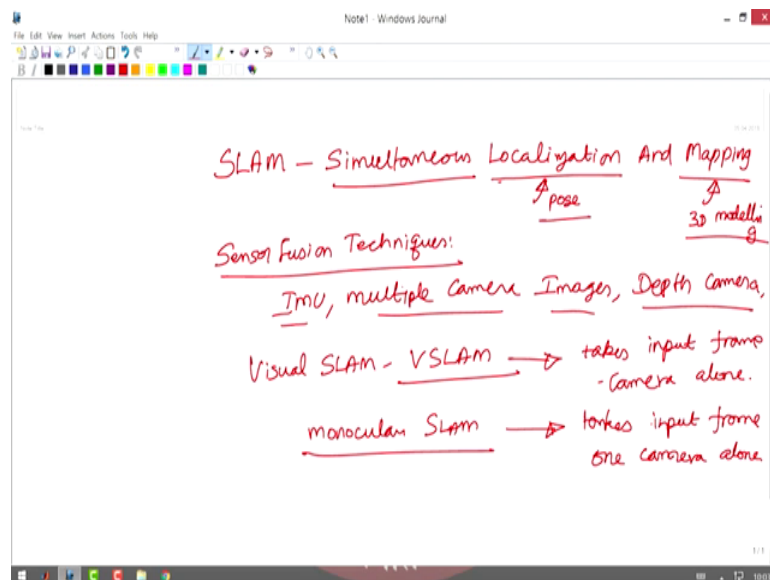 Note1 - Windows Journal
File Edit View Insert Actions Tools Help
B I
Note Title
SLAM - Simultaneous Localization And Mapping
pose
3D modelli
g
Sensor Fusion Techniques:
IMU, multiple Camera Images, Depth Camera,
Visual SLAM - VSLAM → takes input frame
- Camera alone.
monocular SLAM → takes input frome
one camera alone
1/1